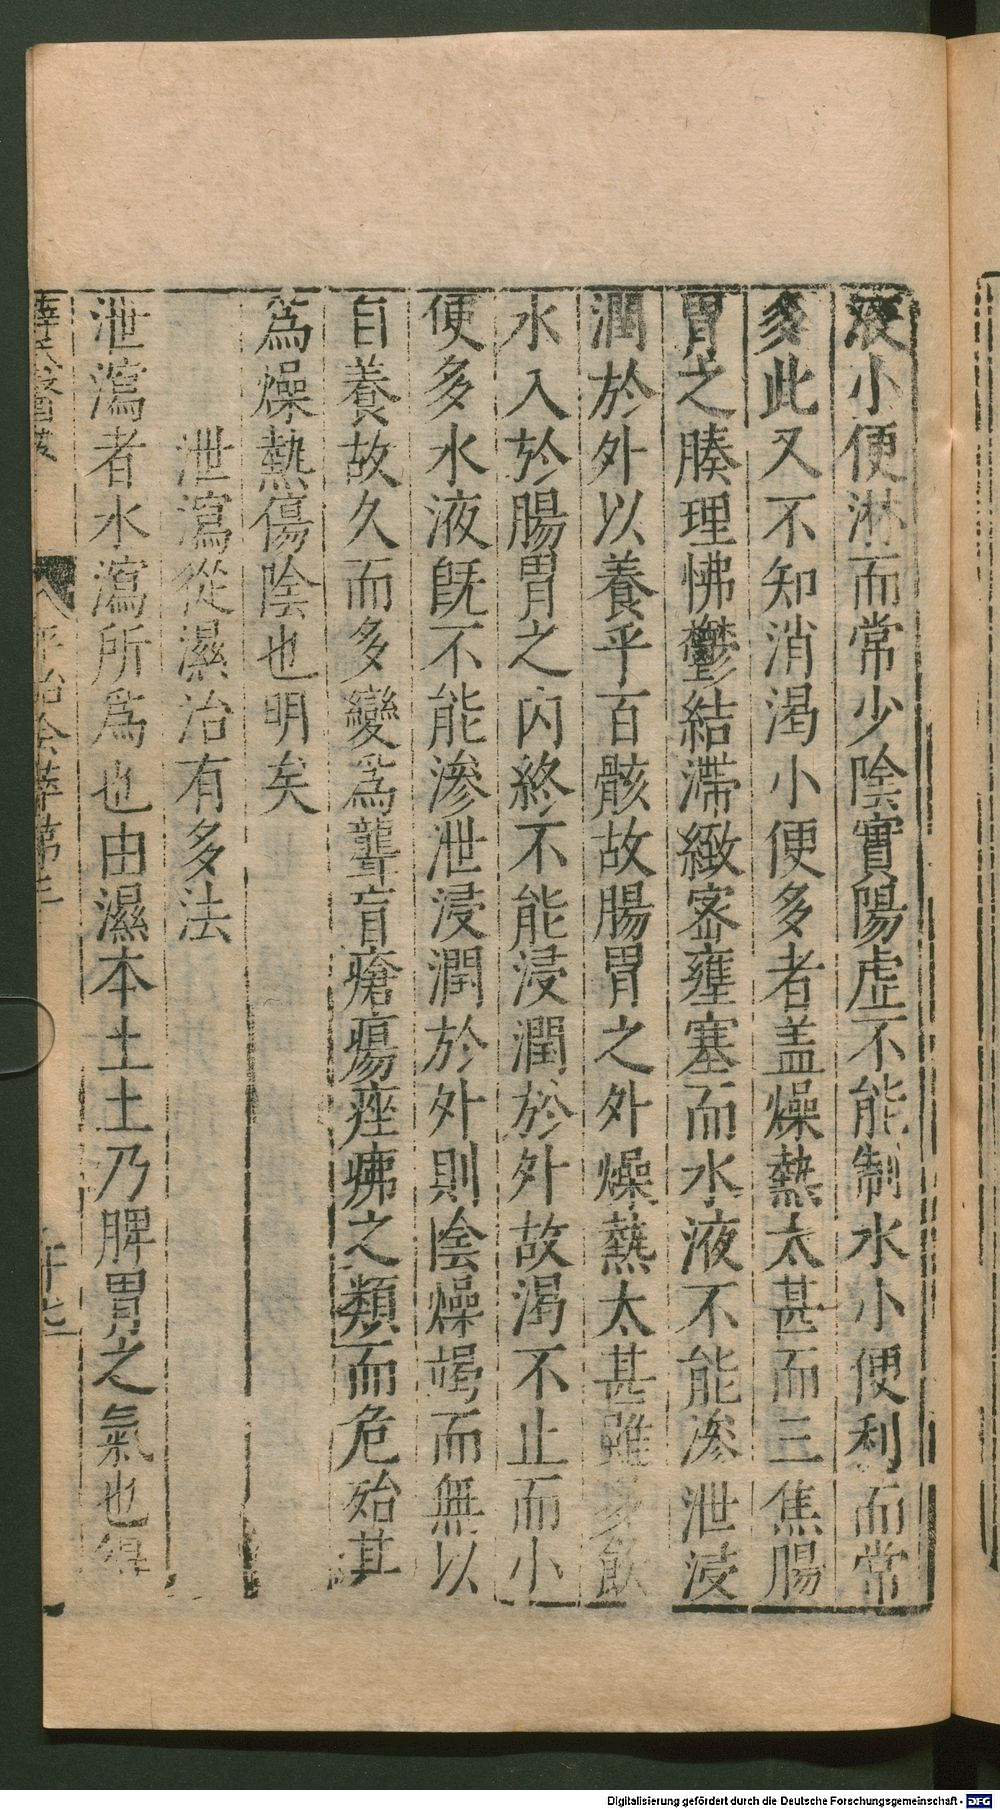 液小便淋而常少陰實陽虛不能制水小便利而常
多此又不知消渴小便多者盖燥熱太甚而三焦腸
胃之腠理怫鬱結滯緻宻壅塞而水液不能滲泄浸
潤於外以養乎百骸故腸胃之外燥熱太甚雖多飲
水入於腸胃之内終不能浸潤於外故渴不止而小
便多水液旣不能滲泄浸潤於外則陰燥竭而無以
自養故久而多變爲聾盲瘡瘍痤疿之類而危殆其
爲燥熱傷陰也明矣
泄瀉從濕治有多法
泄瀉者水瀉所爲也由濕本土土乃脾胃之氣也得
平治會萃第
Digitalisierung gefördert durch die Deutsche Forschungsgemeinschaft - DFG